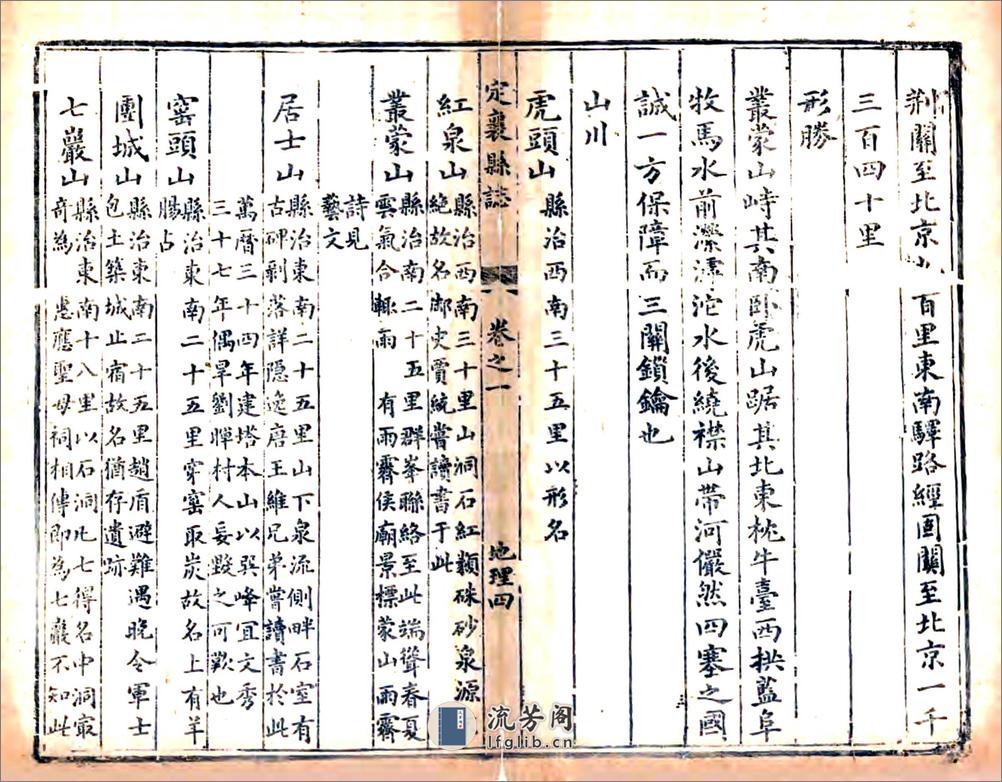 荆關至北京八百里東南驛路經固關至北京一千
三百四十里
形勝
叢蒙山峙其南卧虎山踞其北東枕牛臺西拱藍阜
牧馬水前瀠滹沱水後繞襟山帶河儼然四塞之國
誠一方保障而三關鎖鑰也
山川
虎頭山縣治西南三十五里以形名
定襄縣誌 卷之一 地理四
紅泉山縣治西南三十里山洞石紅顆硃砂泉源
絶故名御史賈統嘗讀書于此
叢蒙山縣治南二十五里群峯聯絡至此端聳春夏
雲氣合輒雨 有雨霽侯廟景標蒙山雨霽
詩見
藝文
居士山縣治東南二十五里山下泉流側畔石室有
古碑剥落詳隱逸唐王維兄弟嘗讀書於此
萬曆三十四年建塔本山以巽峰宜文秀
三十七年偶旱劉暉村人妄毀之可歎也
窑頭山縣治東南二十五里穿窑取炭故名上有羊
腸占
團城山縣治東南二十五里趙盾避難遇晚令軍士
包土築城止宿故名猶存遺跡
七巖山縣治東南十八里以石洞凡七得名中洞最
奇為 惠應聖母祠相傳即為七巖不知此
流芳阁
lfglib.cn